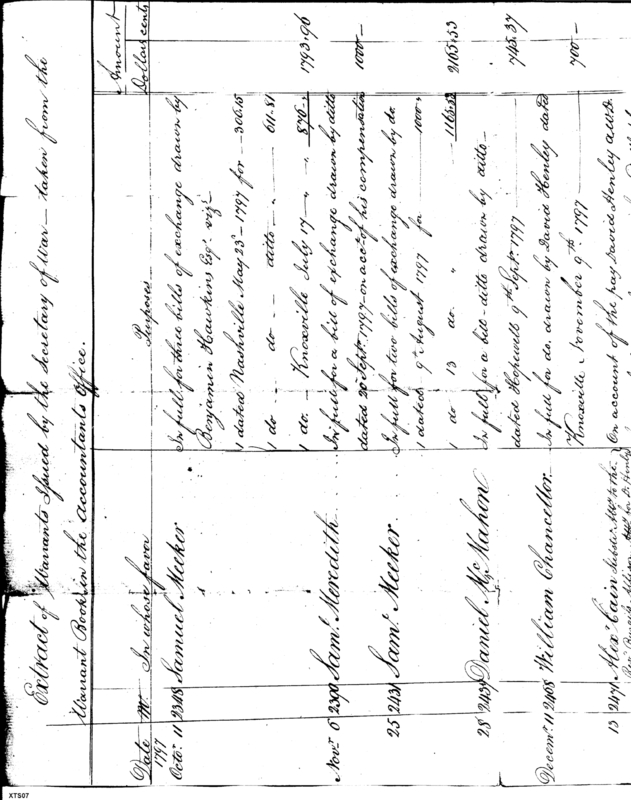 Extract of Warrants Issued by the Secretary of War — taken from the
Warrant Book in the Accountants Office.
Date No. In whose favor Purposes Amount
Dollars cents
1797
Octor. 11 2348 Samuel Meeker In full for three bills of exchange drawn by
Benjamin Hawkins Esqr. vizt.
1 dated Nashville May 23d. 1797 for — 306.15
1 do — do — ditto — " — 611.81
1 do. — Knoxville July 17 — " — " 876 -. 1793.96
Novr. 6 2390 Saml. Meredith In full for a bill of exchange drawn by ditto
dated 20 Septr. 1797 - on acct. of his compensation 1000 —
25 2431 Saml. Meeker In full for two bills of exchange drawn by do.
1 dated 9th August 1797 for 1000 "
1 do 13 do. " 1165.53 2165.53
28 2439 Daniel McMahon In full for a bill - ditto drawn by ditto —
dated Hopewell 9th Septr. 1797 745.37
Decemr. 11 2468 William Chancellor In full for do. drawn by David Henley dated
Knoxville November 9th. 1797 700 —
13 2471 Alexr. Cain On account of the pay David Henley a.w.d.